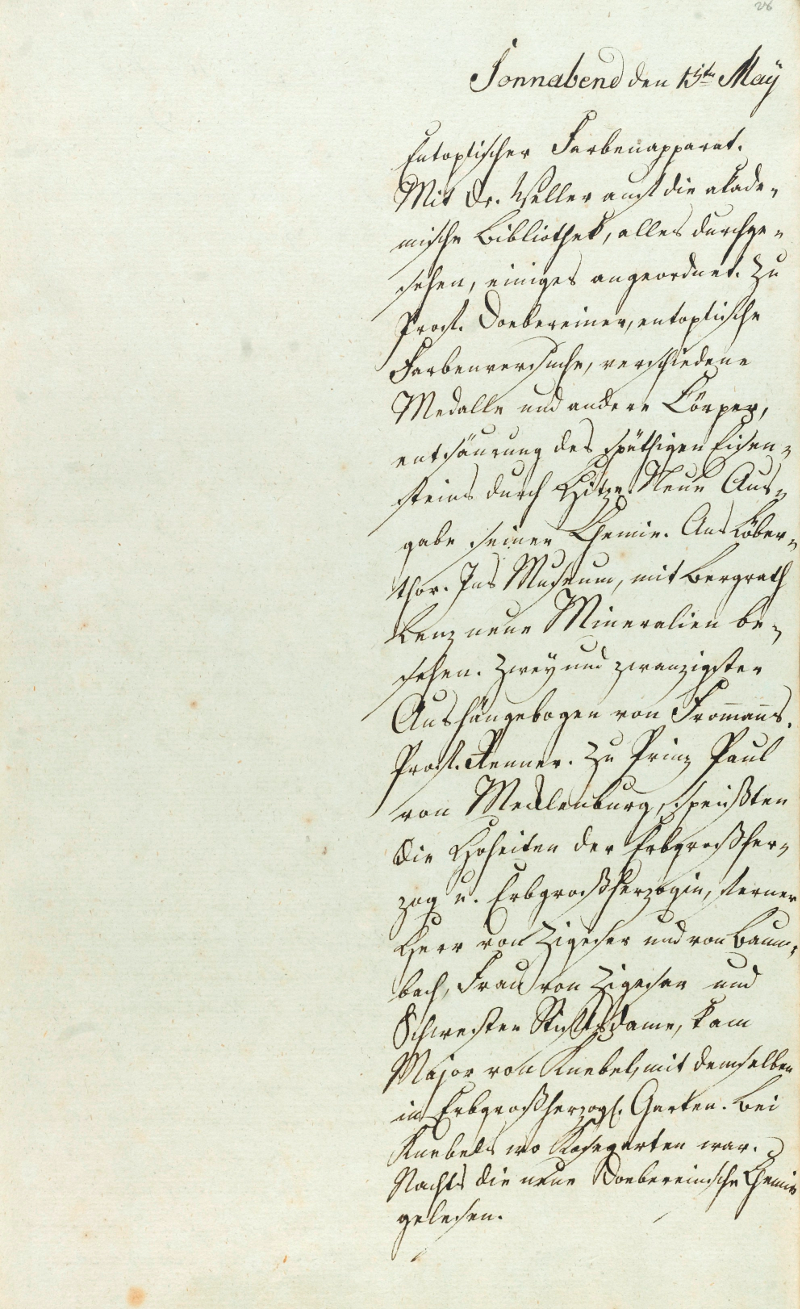 26
Sonnabend den 15ten May
Entoptischer Farbenapparat.
Mit Dr. Weller auf die akade-
mische Bibliothek, alles durchge-
sehen, einiges angeordnet. Zu
Prof. Doebereiner, entoptische
Farbenversuche, verschiedene
Medalle und andere Cörper,
entsäurung des späthigen Eisen-
steins durch Hitze. Neue Aus-
gabe seiner Chemie. Ans Löber-
thor. Ins Museum, mit Bergrath
Lenz neue Mineralien be-
sehen. Zwey und zwanzigster
Aushängebogen von From̅an̅s.
Prof. Renner. Zu Prinz Paul
von Mecklenburg, speißten
die Hoheiten der Erbgroßher-
zog u. Erbgroßherzogin, ferner
Herr von Zigesar und von Baum-
bach, Frau von Zigesar und
Schwester Stiftsdame, kam
Major von Knebel, mit demselben
in Erbgroßherzogl. Garten. Bei
Knebels wo Kosegarten war.
Nachts die neue Doebereinische Chemie
gelesen.